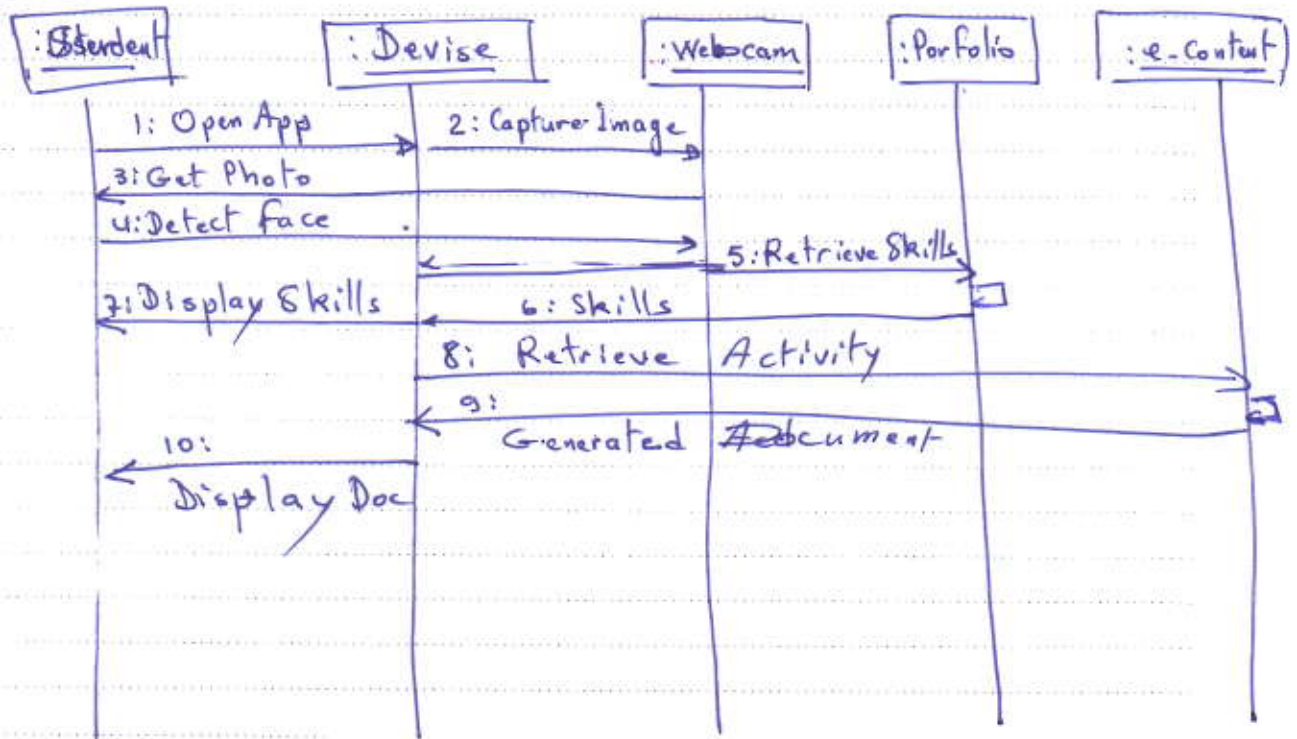 : Student
: Devise
: Webcam
: Porfolio
: e-Content
1: Open App
2: Capture Image
3: Get Photo
4: Detect face
5: Retrieve Skills
7: Display Skills
6: Skills
8: Retrieve Activity
9:
Generated Document
10:
Display Doc